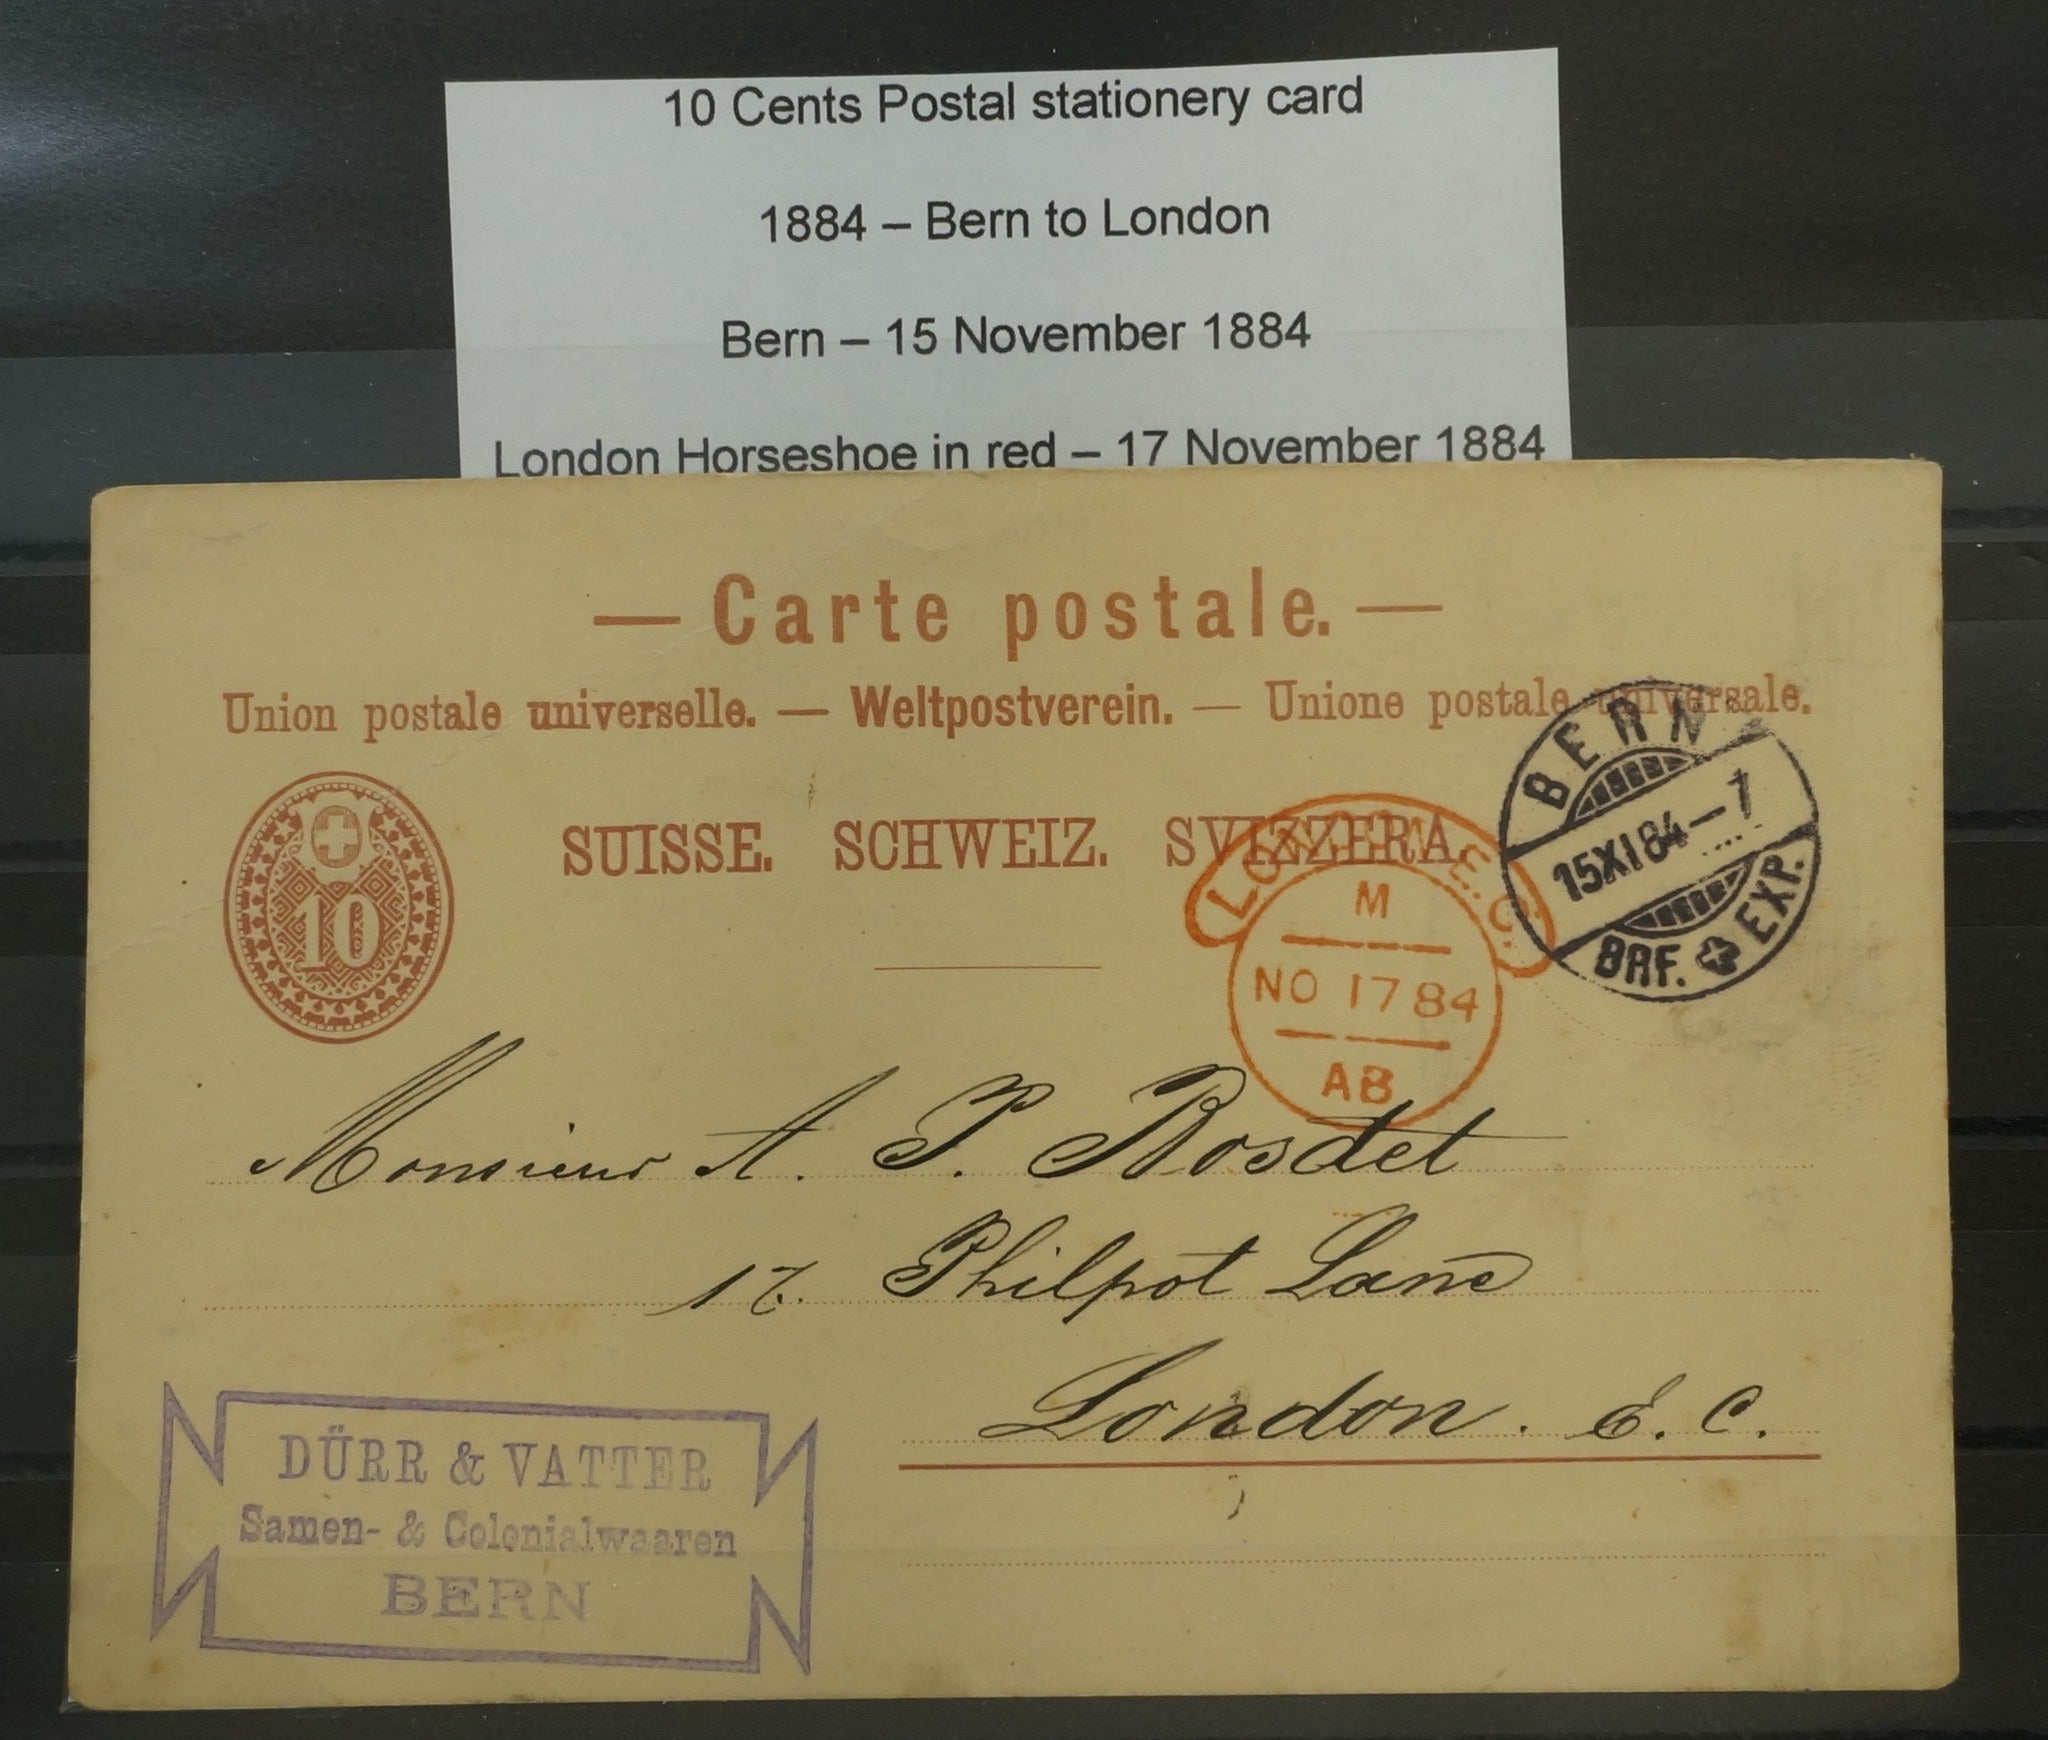 10 Cents Postal stationery card
1884 – Bern to London
Bern – 15 November 1884
London Horseshoe in red – 17 November 1884
— Carte postale. —
Union postale universelle. — Weltpostverein. — Unione postale universale.
BERN
15 XI 84 – 7
BRF. EXP.
10
SUISSE. SCHWEIZ. SVIZZERA.
LONDON E.C.
M
NO 17 84
AB
Monsieur A. P. Rosdet
17. Philpot Lane
London. E. C.
DÜRR & VATTER
Samen- & Colonialwaaren
BERN